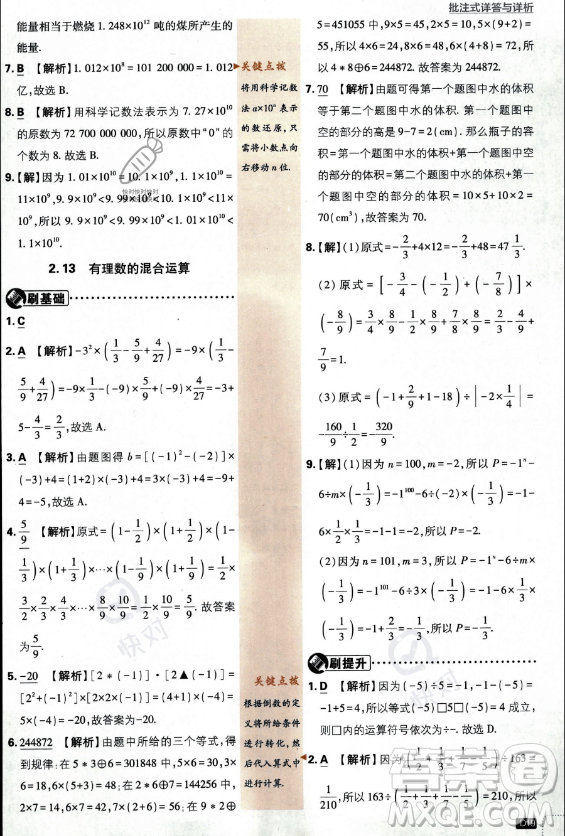 批注式详答与详析
能量相当于燃烧 1.248×10¹² 吨的煤所产生的
能量.
7. B 【解析】1.012×10⁸=101 200 000=1.012
亿,故选 B.
8. B 【解析】用科学记数法表示为 7.27×10¹⁰
的原数为 72 700 000 000,所以原数中“0”的
个数为 8. 故选 B.
9.【解】1.01×10¹⁰=10.1×10⁹,1.1×10¹⁰=
11×10⁹,9.9×10⁹<9.99×10⁹<10.1×10⁹<11×
10⁹,所以 9.9×10⁹<9.99×10⁹<1.01×10¹⁰<
1.1×10¹⁰.
2.13 有理数的混合运算
刷基础
1. C
2. A 【解析】-3²×(1/3-5/9+4/27)=-9×(1/3-
5/9+4/27)=-9×1/3-(-9)×5/9+(-9)×4/27=-3+
5-4/3=2/3,故选 A.
3. A 【解析】由题图得 b=[(-1)²-(-2)]×
(-3)+4=(1+2)×(-3)+4=3×(-3)+4=-9+
4=-5,故选 A.
4. 5/9 【解析】原式=(1-1/2)×(1+1/2)×(1-
1/3)×(1+1/3)×…×(1-1/9)×(1+1/9)=1/2×
3/2×2/3×4/3×…×8/9×10/9=1/2×10/9=5/9. 故答案
为5/9.
5. -20 【解析】[2*(-1)]·[2▲(-1)]=
[2²+(-1)²]×[2×2×(-1)]=(4+1)×(-4)=
5×(-4)=-20. 故答案为-20.
6. 244872 【解析】由题中所给的三个等式,得
到规律:在 5*3⊕6=301848 中,5×6=30,3×
6=18,6×(5+3)=48;在 2*6⊕7=144256 中,
2×7=14,6×7=42,7×(2+6)=56;在 9*2⊕
关键点拨
将用科学记数
法 a×10ⁿ 表示
的数还原,只
需将小数点向
右移动 n 位.
关键点拨
根据倒数的定
义将所给条件
进行转化,然
后代入算式中
进行计算.
5=451055 中,9×5=45,2×5=10,5×(9+2)=
55,所以 4×6=24,8×6=48,6×(4+8)=72,所
以 4*8⊕6=244872. 故答案为 244872.
7. 70 【解析】由题可得第一个题图中水的体积
等于第二个题图中水的体积. 第二个题图中
空的部分的高是 9-7=2(cm). 那么瓶子的容
积=第一个题图中水的体积+第二个题图中空
的部分的体积=第一个题图中水的体积+第二
个题图中空的部分的体积=10×5+10×2=
70(cm³),故答案为 70.
8.【解】(1)原式=-2/3+4×12=-2/3+48=47 1/3.
(2)原式=[-3/4-(-1/2)+(-7/8)]×
(-8/9)=3/4×8/9-1/2×8/9+7/8×8/9=2/3-4/9+
7/9=1.
(3)原式=(-1+2/9+1-18)÷|-2×1/4|=
-160/9÷1/2=-320/9.
9.【解】(1)因为 n=100,m=-2,所以 P=-1ⁿ-
6÷m×(-1/3)=-1¹⁰⁰-6÷(-2)×(-1/3)=-1-
6×1/2×1/3=-1-1=-2,所以 P=-2.
(2)因为 n=101,m=3,所以 P=-1ⁿ-6÷m×
(-1/3)=-1¹⁰¹-6÷3×(-1/3)=-1-6×1/3×
(-1/3)=-1+2/3=-1/3,所以 P=-1/3.
刷提升
1. D 【解析】因为(-5)÷5=-1,-1-(-5)=
-1+5=4,所以等式(-5)□5□(-5)=4 成立,
则□内的运算符号依次为÷,-. 故选 D.
2. A 【解析】因为
÷163=
1/210,所以 163÷
=210,所以